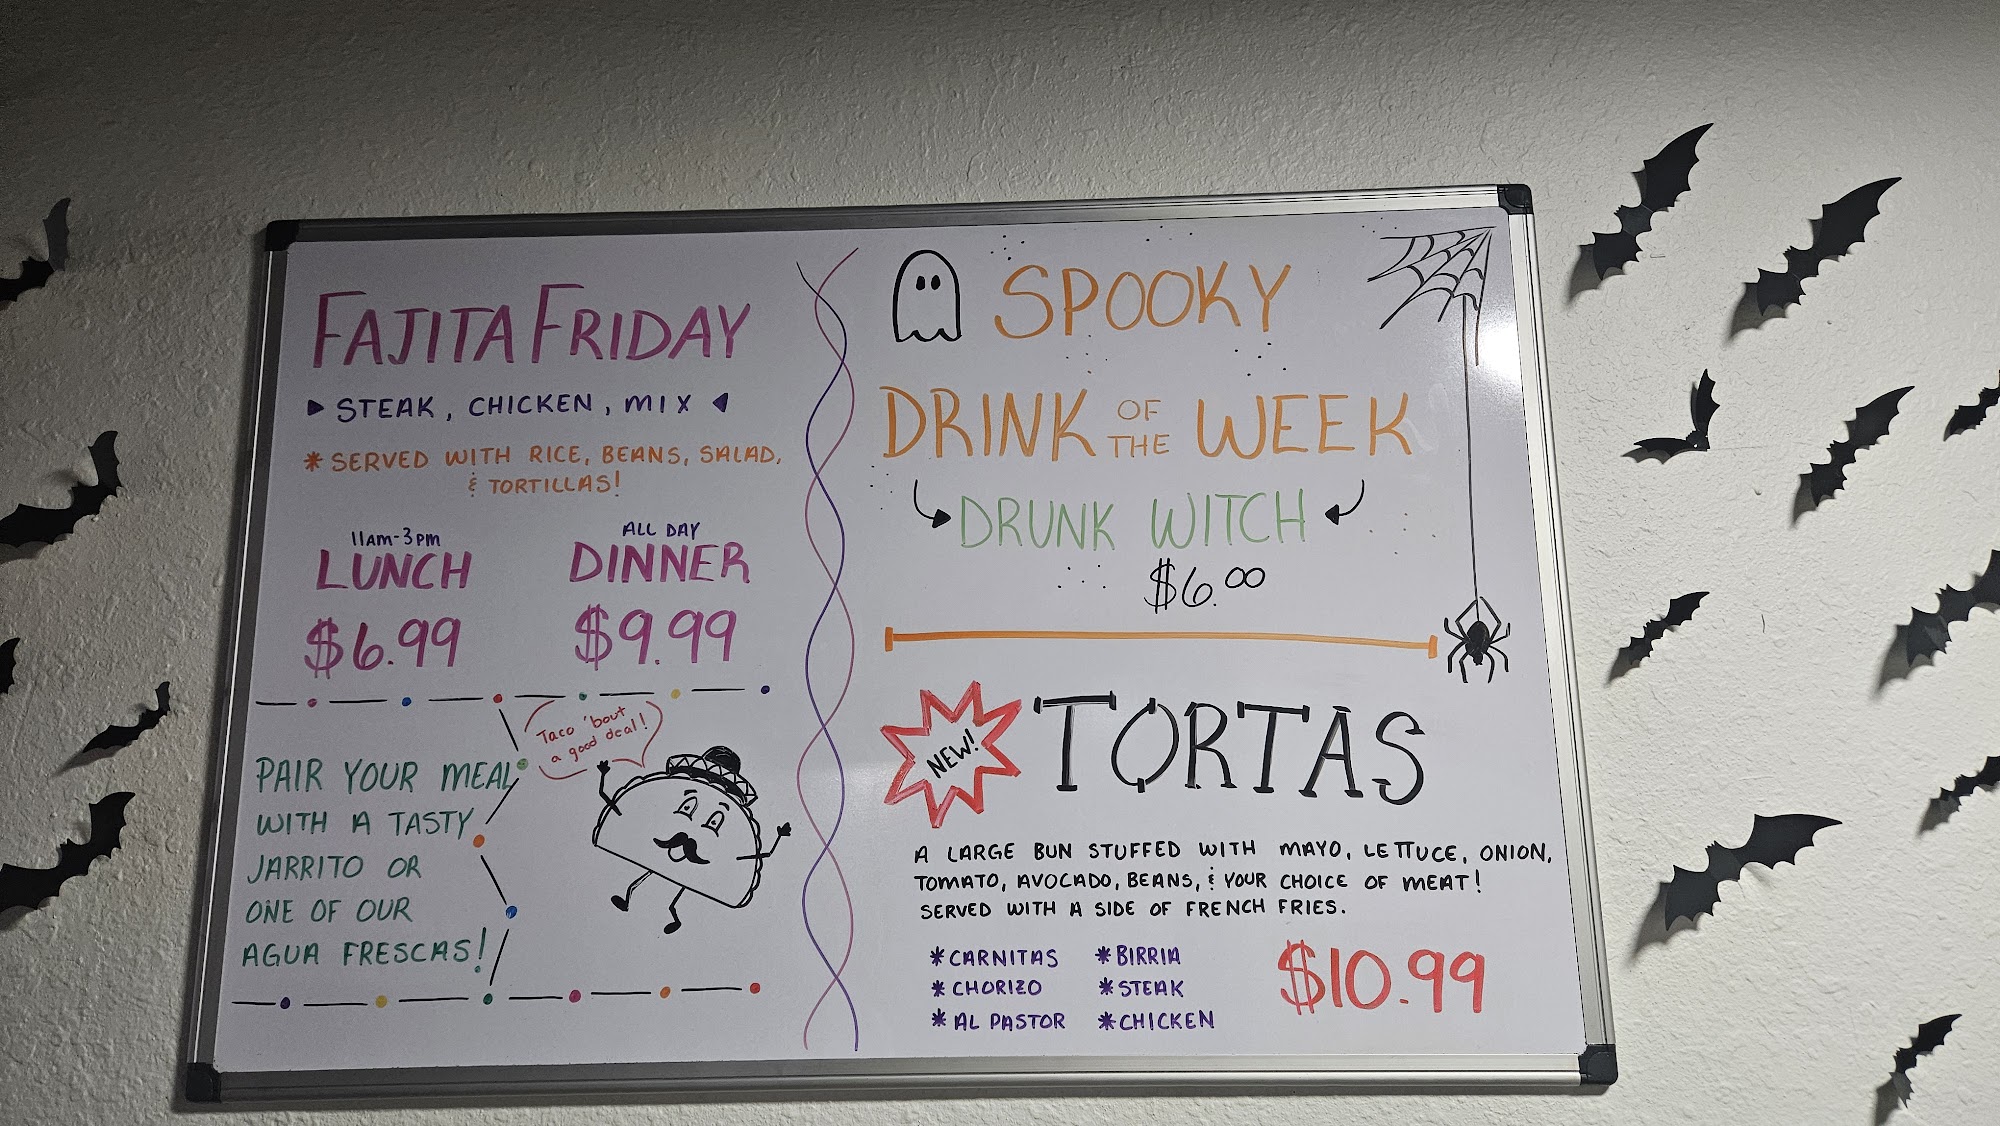 FAJITA FRIDAY
STEAK, CHICKEN, MIX
* SERVED WITH RICE, BEANS, SALAD,
& TORTILLAS!
11AM-3PM
LUNCH
$6.99
ALL DAY
DINNER
$9.99
Taco 'bout
a good deal!
PAIR YOUR MEAL
WITH A TASTY
JARRITO OR
ONE OF OUR
AGUA FRESCAS!
SPOOKY
DRINK OF THE WEEK
DRUNK WITCH
$6.00
NEW!
TORTAS
A LARGE BUN STUFFED WITH MAYO, LETTUCE, ONION,
TOMATO, AVOCADO, BEANS, & YOUR CHOICE OF MEAT!
SERVED WITH A SIDE OF FRENCH FRIES.
* CARNITAS
* CHORIZO
* AL PASTOR
* BIRRIA
* STEAK
* CHICKEN
$10.99